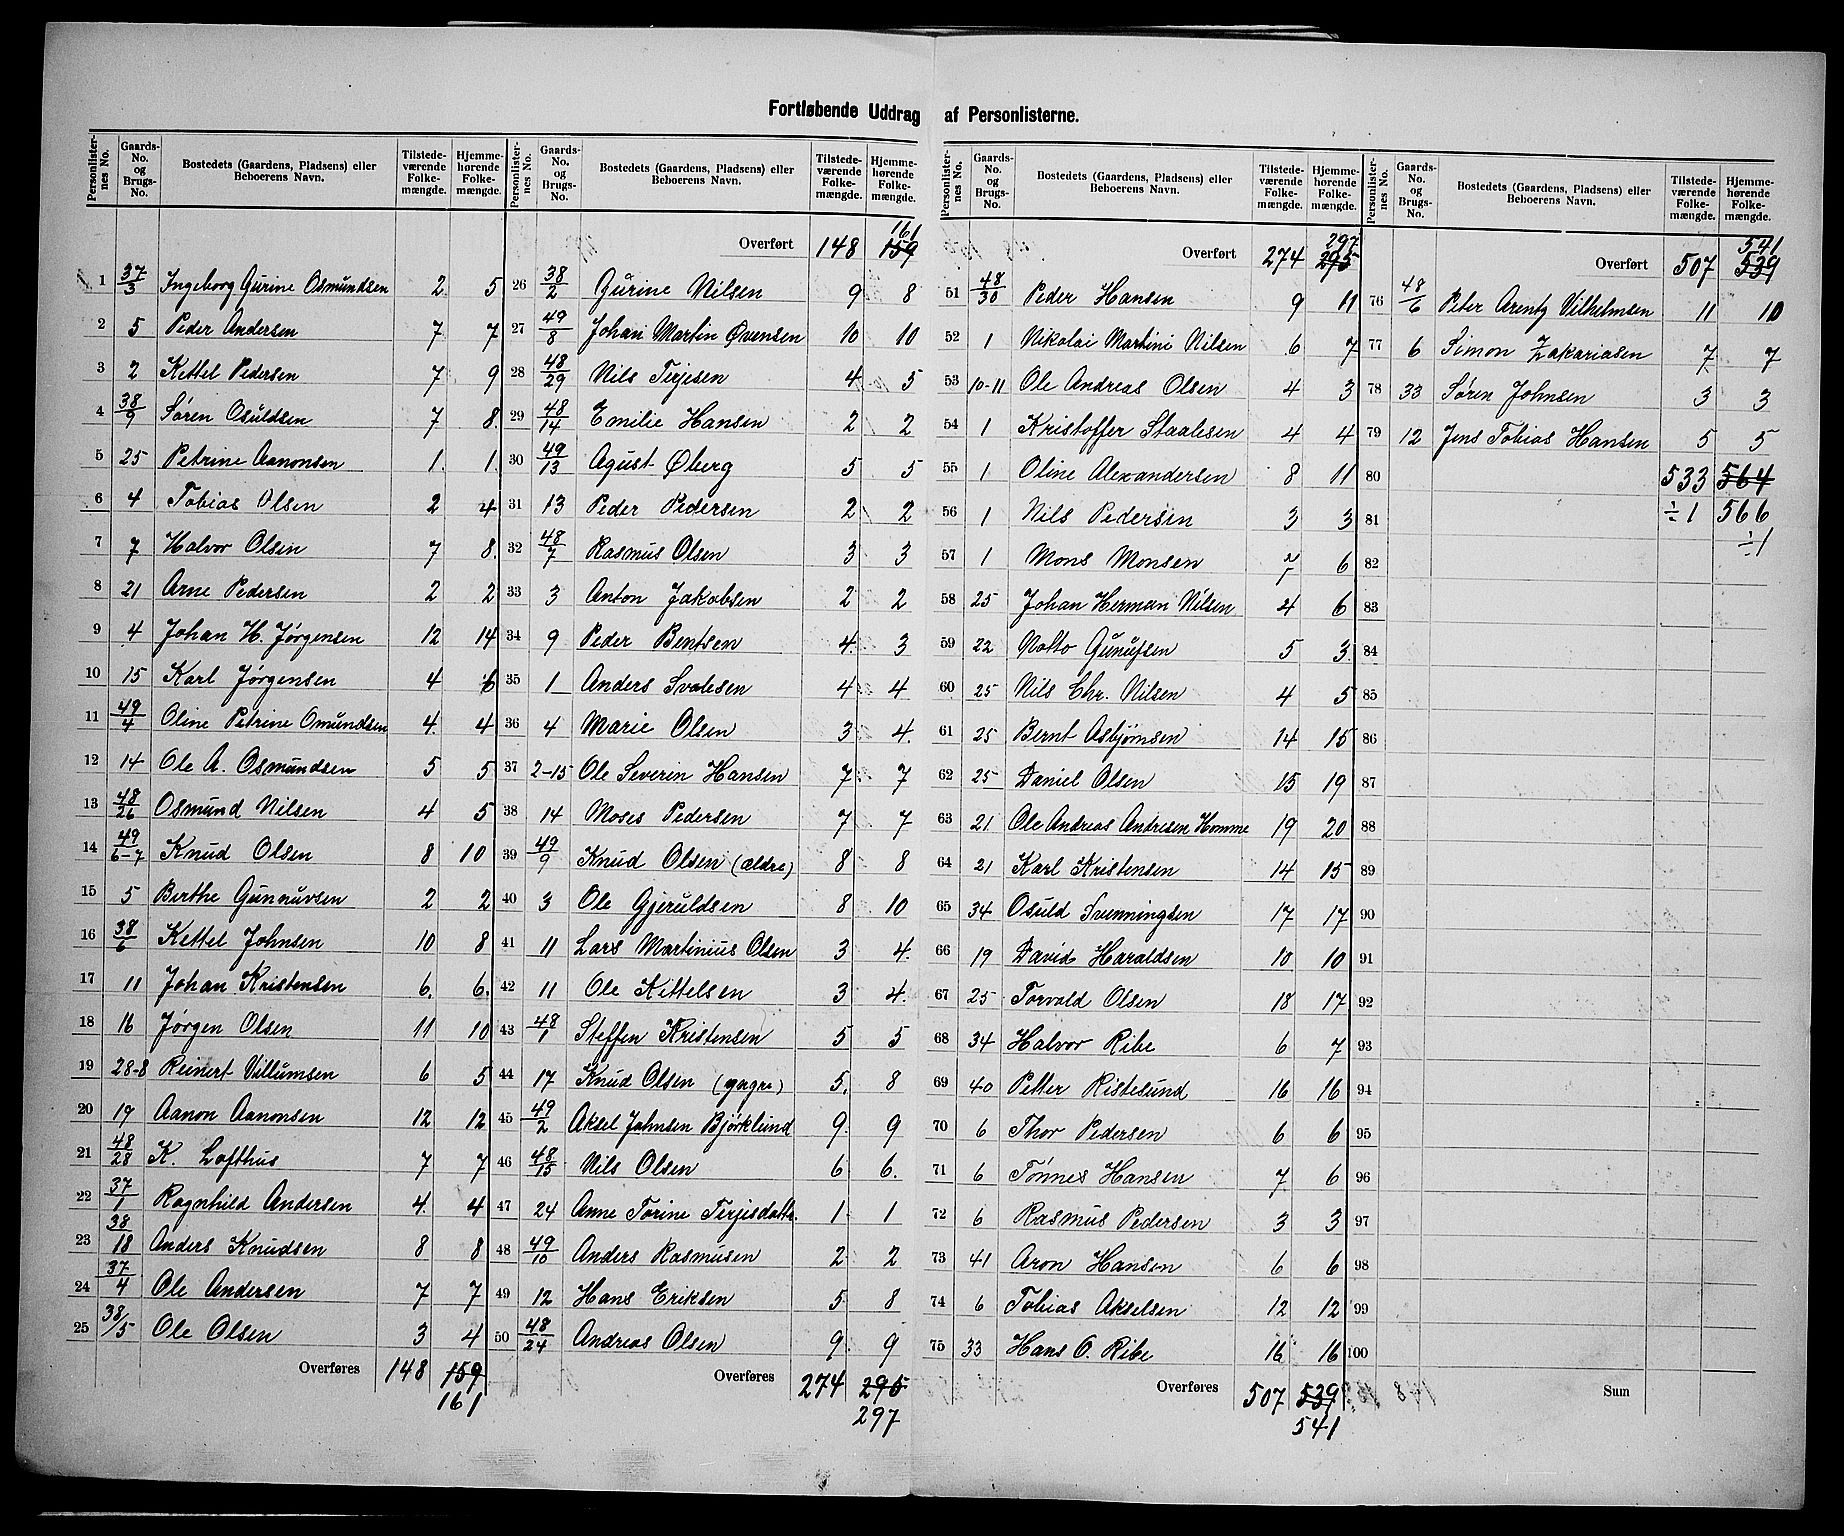 Fortløbende Uddrag af Personlisterne.
Personlisternes No. Gaards-No. og Brugs-No. Bostedets (Gaardens, Pladsens) eller Beboerens Navn. Tilstedeværende Folkemængde. Hjemmehørende Folkemængde.
1 37/3 Ingeborg Gurine Osmundsen 2 5
2 5 Peder Andersen 7 7
3 2 Kettel Pedersen 7 9
4 38/9 Søren Osuldsen 7 8
5 25 Petrine Aanonsen 1 1
6 4 Tobias Olsen 2 4
7 7 Halvor Olsen 7 8
8 21 Arne Pedersen 2 2
9 4 Johan H. Jørgensen 12 14
10 15 Karl Jørgensen 4 6
11 49/4 Oline Petrine Omundsen 4 4
12 14 Ole A. Osmundsen 5 5
13 48/26 Osmund Nilsen 4 5
14 49/6-7 Knud Olsen 8 10
15 5 Berthe Gunnuvsen 2 2
16 38/6 Kettel Johnsen 10 8
17 11 Johan Kristensen 6 6
18 16 Jørgen Olsen 11 10
19 28-8 Reinert Villumsen 6 5
20 19 Aanon Aanonsen 12 12
21 48/28 K. Lofthus 7 7
22 37/1 Ragnhild Andersen 4 4
23 38/18 Anders Knudsen 8 8
24 37/4 Ole Andersen 7 7
25 38/5 Ole Olsen 3 4
Overføres 148 159
161
Personlisternes No. Gaards-No. og Brugs-No. Bostedets (Gaardens, Pladsens) eller Beboerens Navn. Tilstedeværende Folkemængde. Hjemmehørende Folkemængde.
161
Overført 148 159
26 38/2 Gurine Nilsen 9 8
27 49/8 Johan Martin Øvensen 10 10
28 48/29 Nils Terjesen 4 5
29 48/14 Emilie Hansen 2 2
30 49/13 Agust Øberg 5 5
31 13 Peder Pedersen 2 2
32 48/7 Rasmus Olsen 3 3
33 3 Anton Jakobsen 2 2
34 9 Peder Bentsen 4 3
35 1 Anders Svalesen 4 4
36 4 Marie Olsen 3 4
37 2-15 Ole Severin Hansen 7 7
38 14 Moses Pedersen 7 7
39 49/9 Knud Olsen (ældre) 8 8
40 3 Ole Gjeruldsen 8 10
41 11 Lars Martinius Olsen 3 4
42 11 Ole Kittelsen 3 4
43 48/1 Steffen Kristensen 5 5
44 17 Knud Olsen (yngre) 5 8
45 49/2 Aksel Johnsen Bjørklund 9 9
46 48/15 Nils Olsen 6 6
47 24 Anne Torine Terjesdatte. 1 1
48 49/10 Anders Rasmusen 2 2
49 12 Hans Eriksen 5 8
50 48/24 Andreas Olsen 9 9
Overføres 274 295
297
Personlisternes No. Gaards-No. og Brugs-No. Bostedets (Gaardens, Pladsens) eller Beboerens Navn. Tilstedeværende Folkemængde. Hjemmehørende Folkemængde.
297
Overført 274 295
51 48/30 Peder Hansen 9 11
52 1 Nikolai Martini Nilsen 6 7
53 10-11 Ole Andreas Olsen 4 3
54 1 Kristoffer Staalesen 4 4
55 1 Oline Alexandersen 8 11
56 1 Nils Pedersen 3 3
57 1 Mons Monsen 5 6
58 25 Johan Herman Nilsen 4 6
59 22 Notto Gunufsen 5 3
60 25 Nils Chr. Nilsen 4 5
61 25 Bernt Asbjørnsen 14 15
62 25 Daniel Olsen 15 19
63 21 Ole Andreas Andresen Homme 19 20
64 21 Karl Kristensen 14 15
65 34 Osuld Svenningsen 17 17
66 19 David Haraldsen 10 10
67 25 Torvald Olsen 18 17
68 34 Halvor Ribe 6 7
69 40 Petter Ristesund 16 16
70 6 Thor Pedersen 6 6
71 6 Tønnes Hansen 7 6
72 6 Rasmus Pedersen 3 3
73 41 Aron Hansen 6 6
74 6 Tobias Akselsen 12 12
75 33 Hans O. Ribe 16 16
Overføres 507 539
541
Personlisternes No. Gaards-No. og Brugs-No. Bostedets (Gaardens, Pladsens) eller Beboerens Navn. Tilstedeværende Folkemængde. Hjemmehørende Folkemængde.
541
Overført 507 539
76 48/6 Peter Arentz Vilhelmsen 11 10
77 6 Simon Zakariasen 7 7
78 33 Søren Johnsen 3 3
79 12 Jens Tobias Hansen 5 5
80 533 564
81 ÷1 566
÷1
82
83
84
85
86
87
88
89
90
91
92
93
94
95
96
97
98
99
100
Sum